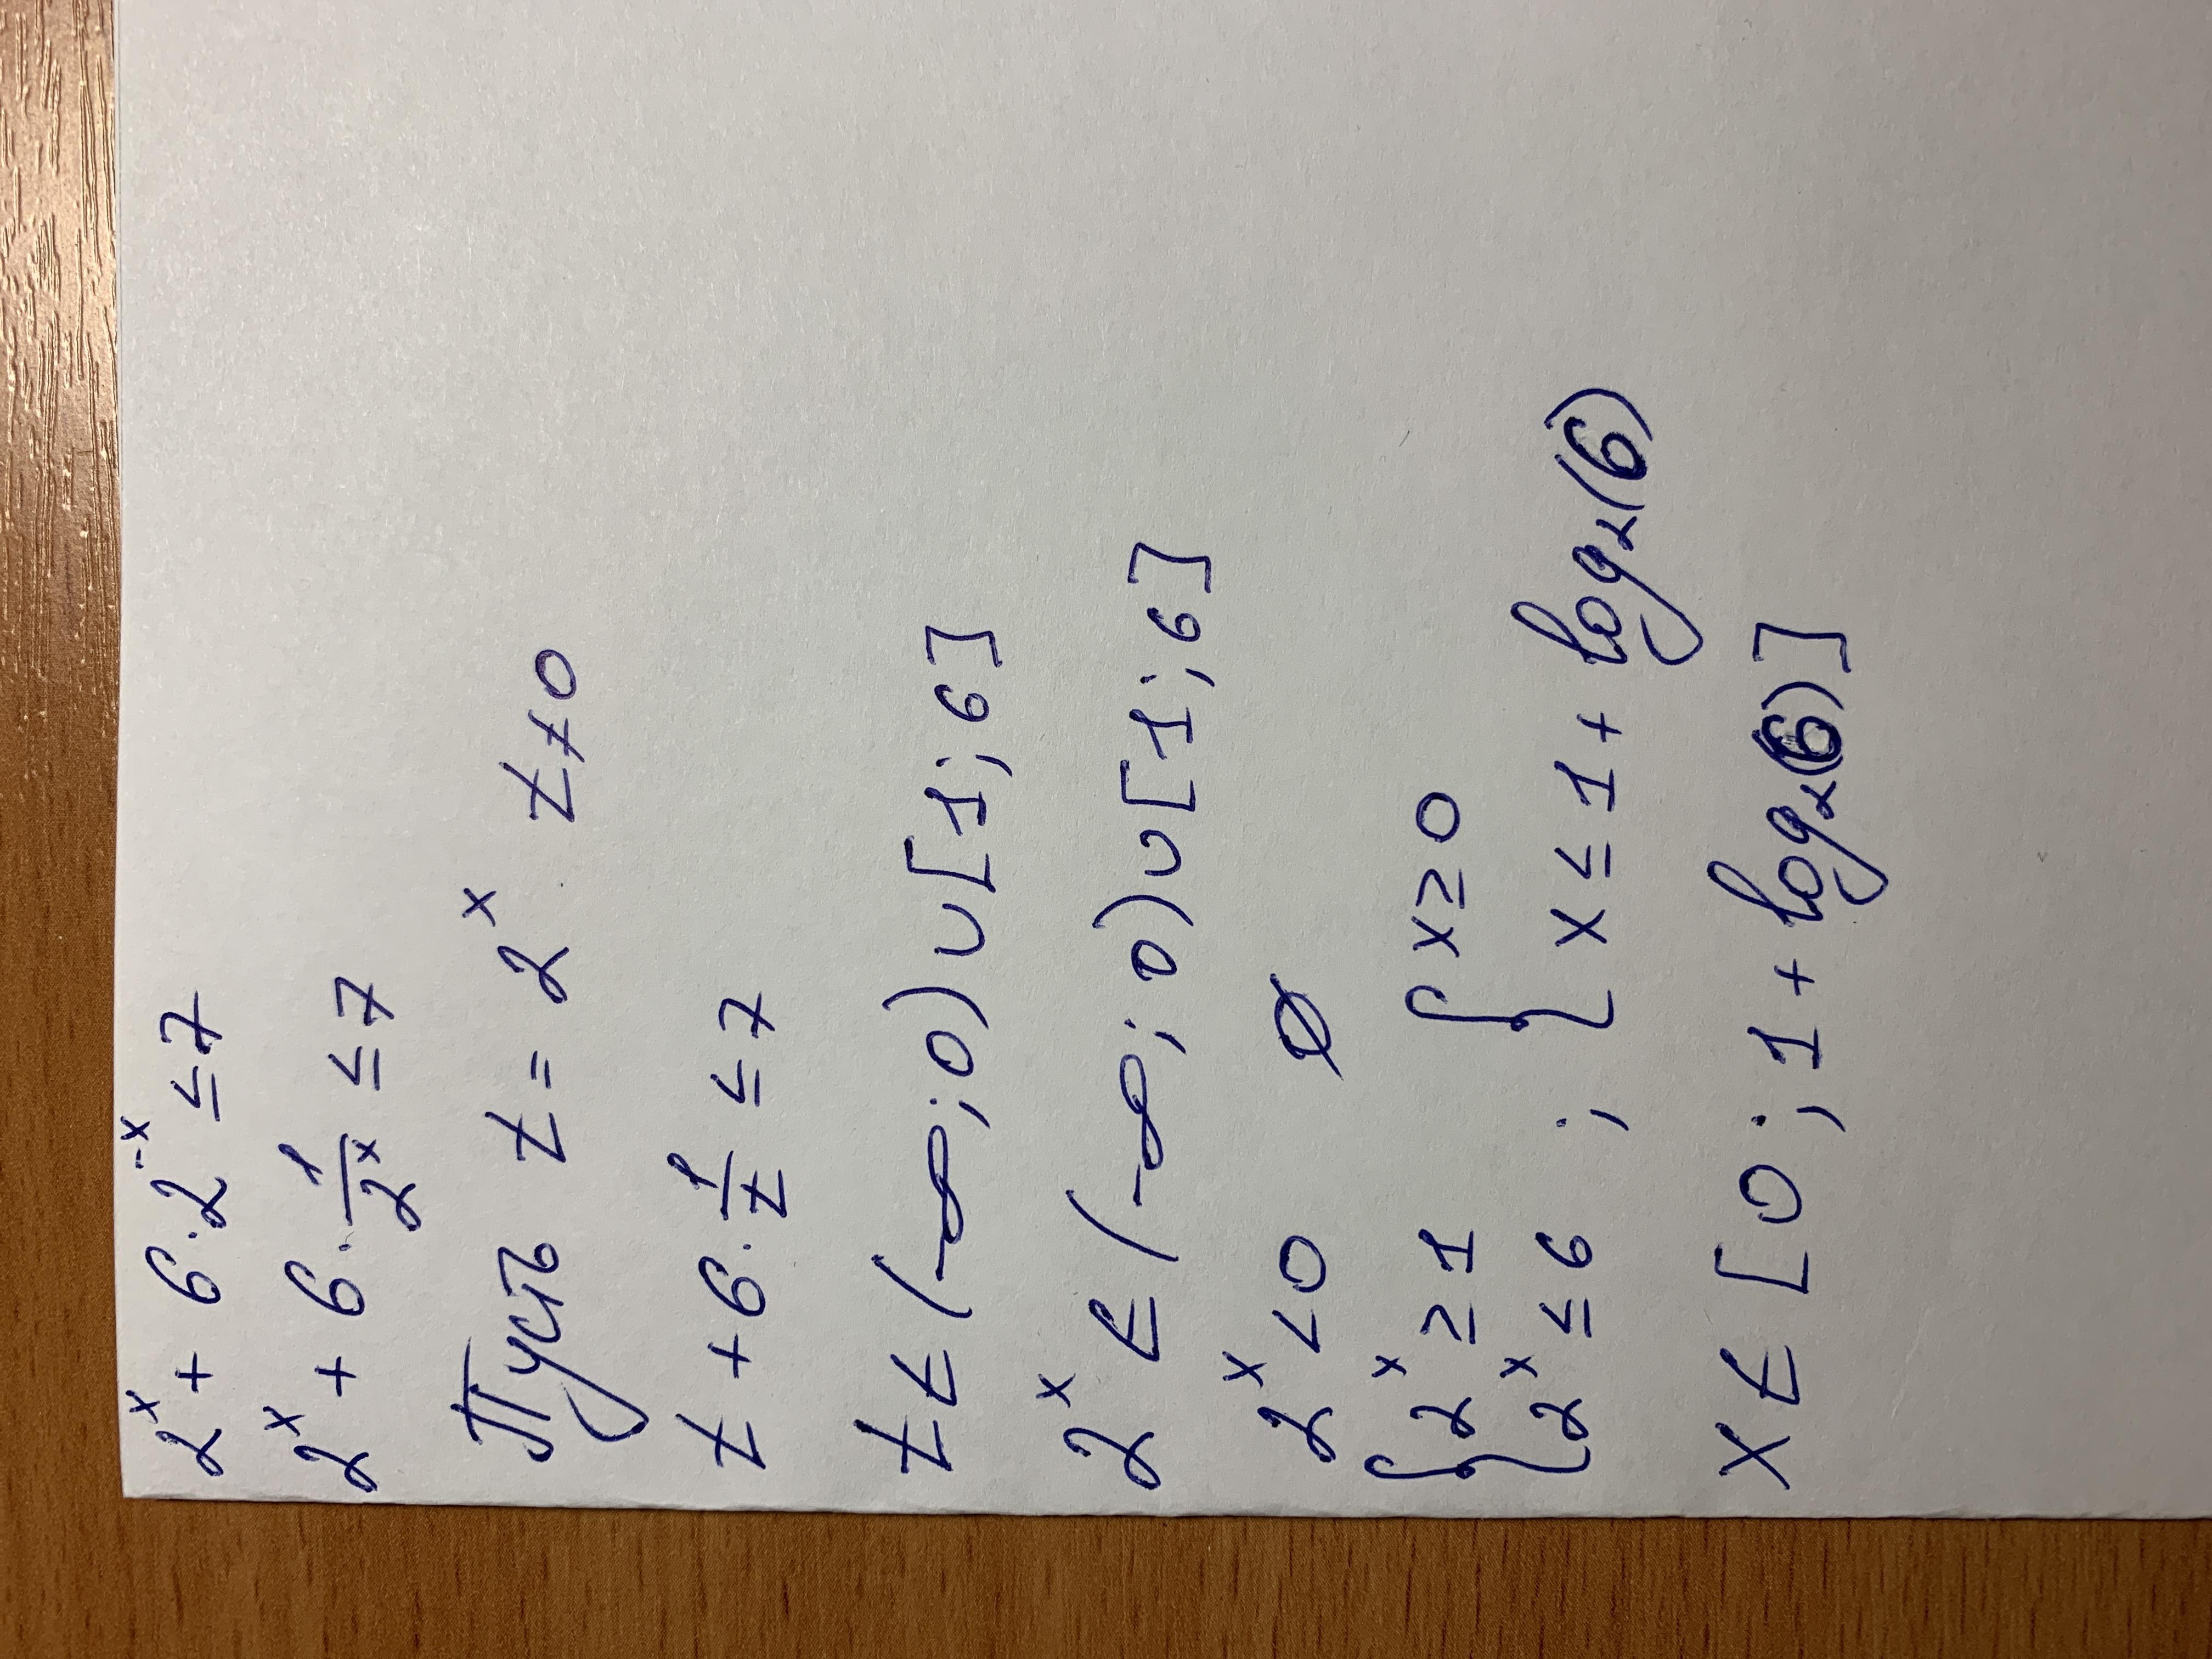 2ˣ + 6 · 2⁻ˣ ≤ 7
2ˣ + 6 · 1/2ˣ ≤ 7
Пусть t = 2ˣ t ≠ 0
t + 6 · 1/t ≤ 7
t ∈ (-∞; 0) ∪ [1; 6]
2ˣ ∈ (-∞; 0) ∪ [1; 6]
2ˣ < 0 ∅
{ 2ˣ ≥ 1 { x ≥ 0
2ˣ ≤ 6 ; x ≤ 1 + log₂(6)
x ∈ [0; 1 + log₂(6)]